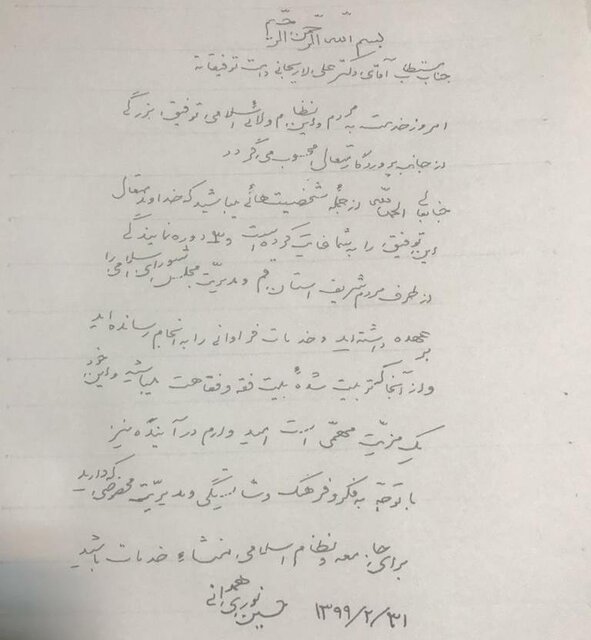 بسم اللّه الرّحمن الرّحیم
جناب مستطاب آقای دکتر علی لاریجانی دامت توفیقاته
امروز خدمت به مردم و این نظام ولائی اسلامی توفیق بزرگی
از جانب پروردگار متعال محسوب می‌گردد
جنابعالی الحمدللّه از جملهٔ شخصیتهائی میباشید که خداوند متعال
این توفیق را به شما عنایت کرده است و ۳ دوره نمایندگی
از طرف مردم شریف استان قم و مدیریّت مجلس شورای اسلامی را
بر عهده داشته‌اید و خدمات فراوانی را به انجام رسانده‌اید
و از آنجا که تربیت شدهٔ بیت فقه و فقاهت میباشید و این خود
یک مزیّت مهمّی است امید وارم در آینده نیز
با توجّه به فکر و فرهنگ و شایستگی و مدیریّت که دارید
برای جامعه و نظام اسلامی منشاء خدمات باشید
حسین نوری همدانی
۱۳۹۹/۲/۳۱